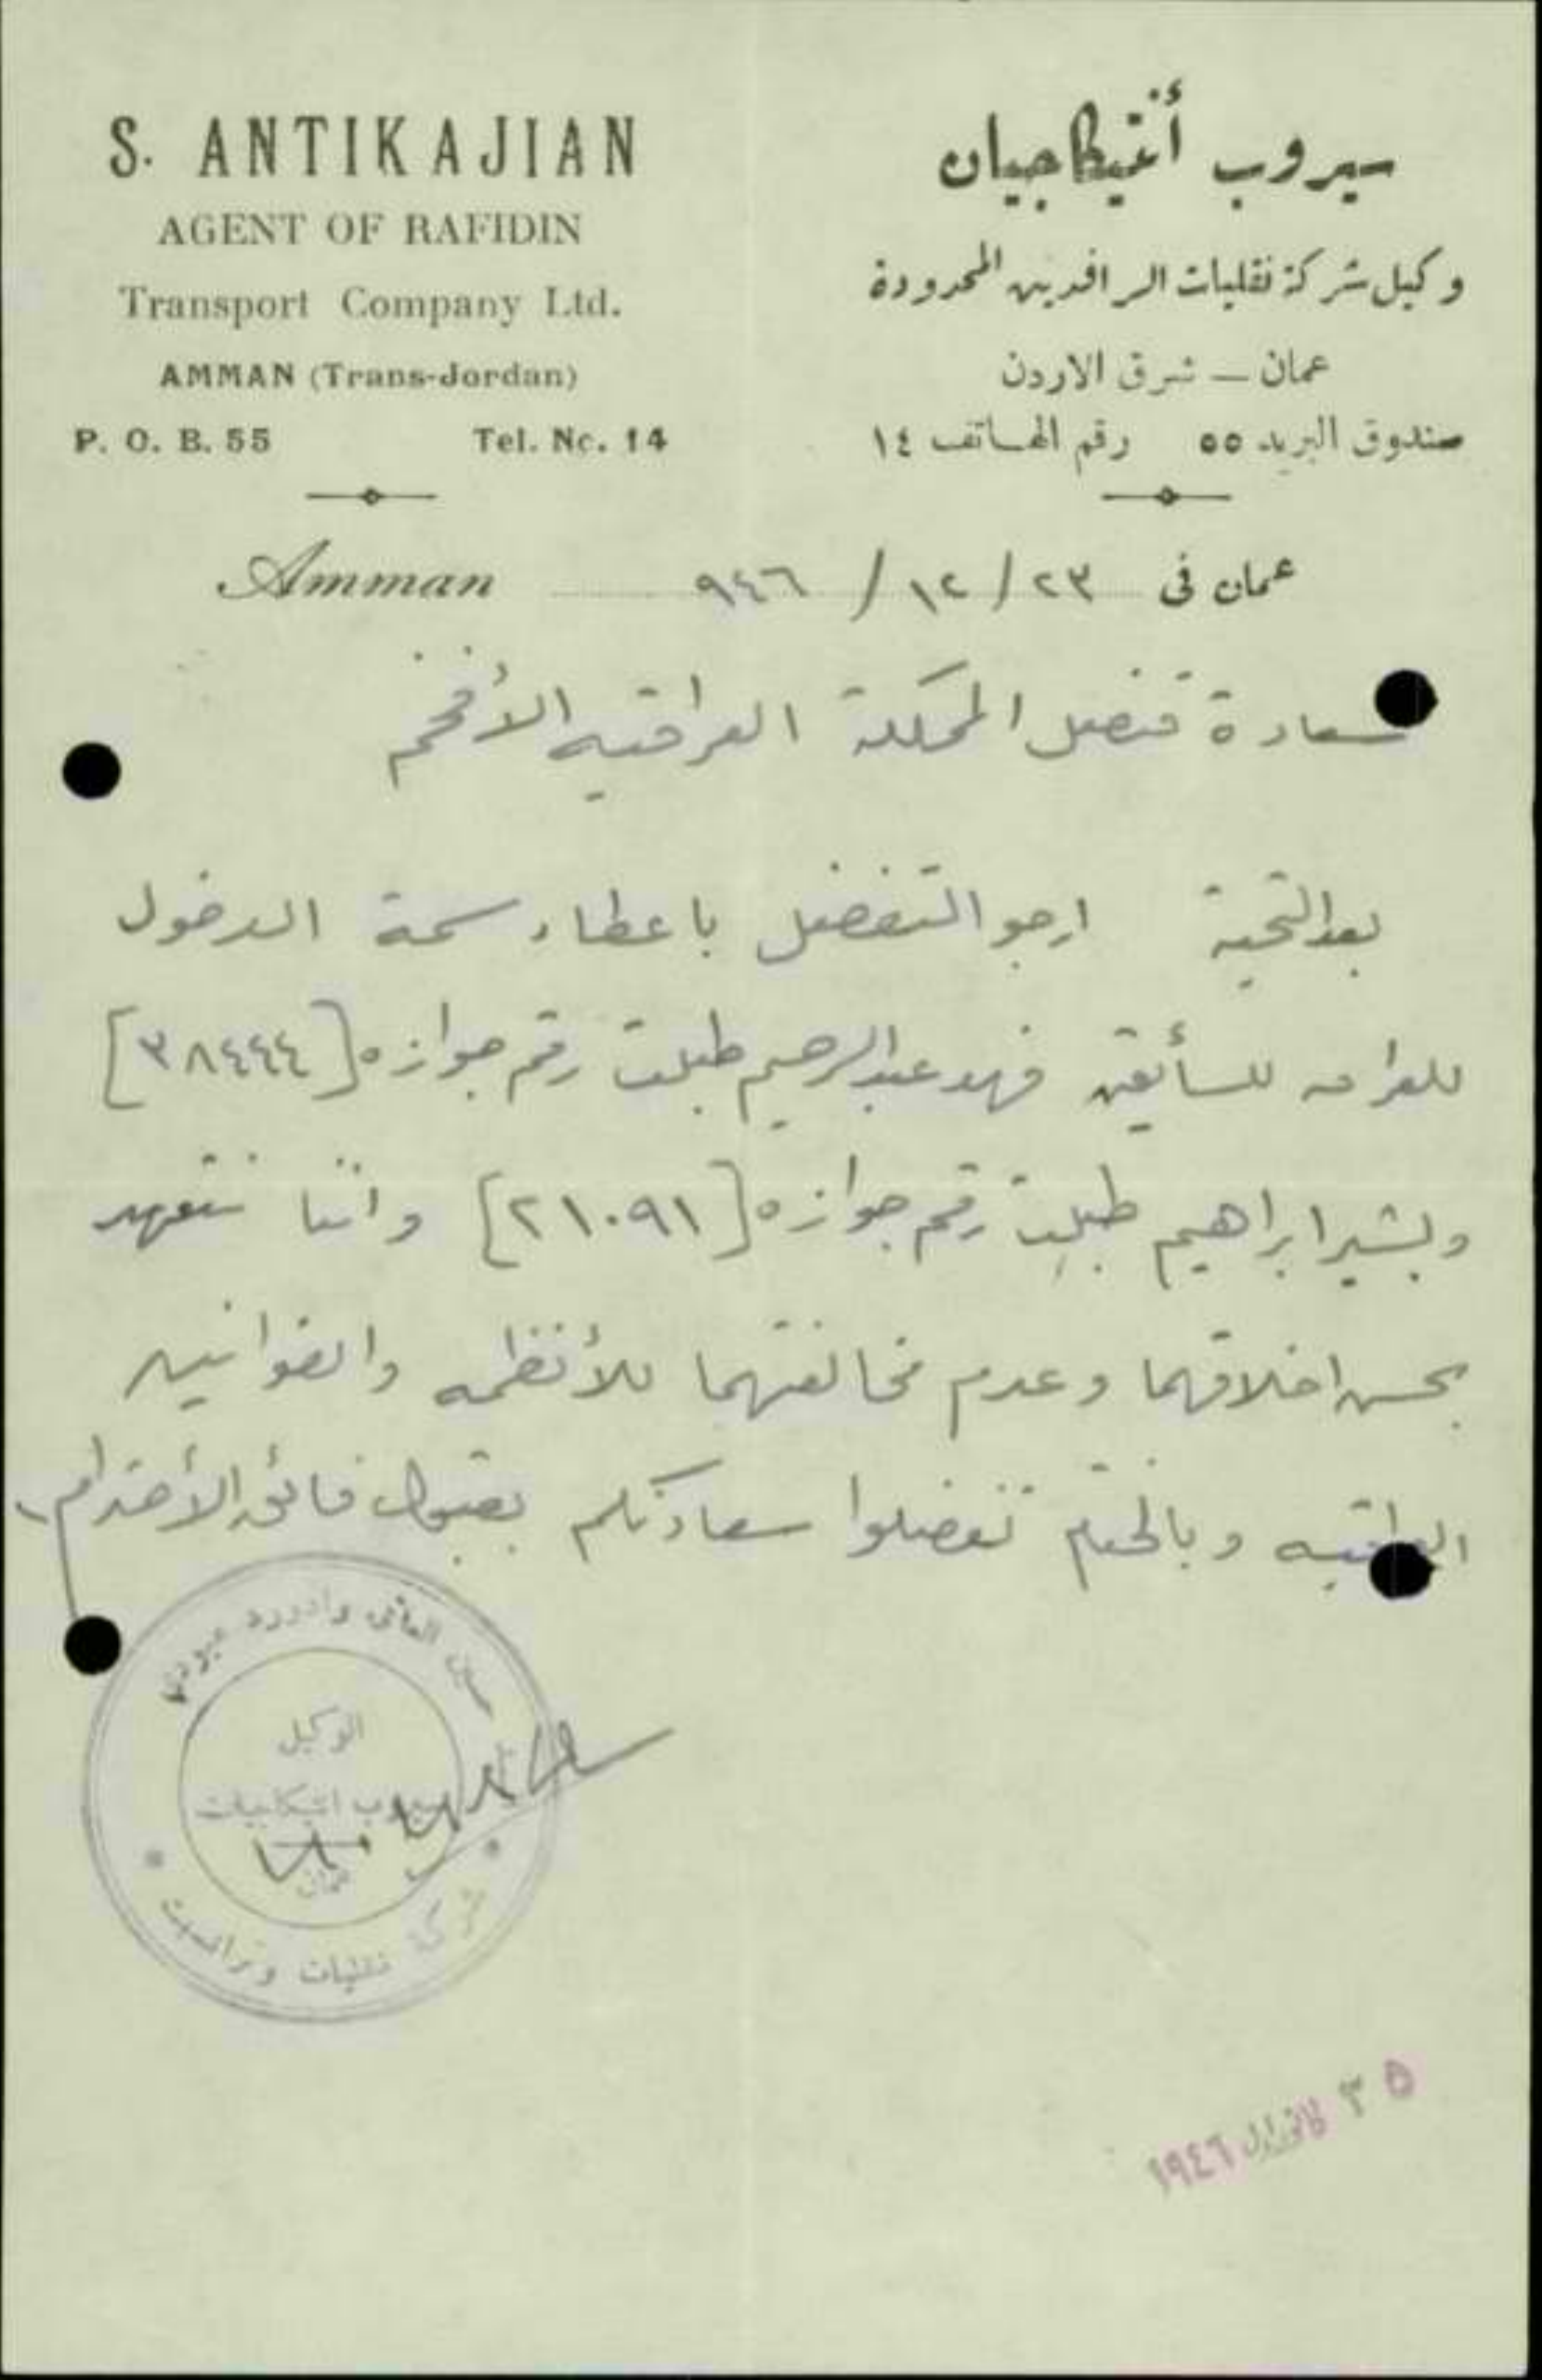 S. ANTIKAJIAN
AGENT OF RAFIDIN
Transport Company Ltd.
AMMAN (Trans-Jordan)
P. O. B. 55 Tel. No. 14
سيروب أنتيكاجيان
وكيل شركة نقليات الرافدين المحدودة
عمان – شرق الاردن
صندوق البريد ٥٥ رقم الهاتف ١٤
عمان فى ٢٣ / ١٢ / ٩٤٦ Amman
سعادة قنصل المملكة العراقيه الأفخم
بعد التحية ارجو التفضل باعطاء سمة الدخول
للعراق للسأيقين فهد عبد الرحيم طبلت رقم جوازه [٣٨٤٤٤]
وبشير ابراهيم طبلت رقم جوازه [٢١٠٩١] واننا نتعهد
بحسن اخلاقهما وعدم مخالفتهما للأنظمه والقوانين
العراقيه وبالختام تفضلوا سعادتكم بقبول فائق الأحترام
حسين العاني وادورد عبودي
الوكيل
سيروب انتيكاجيان
عمان
شركة نقليات وترانسيت
٣٥ كانون اول ١٩٤٦